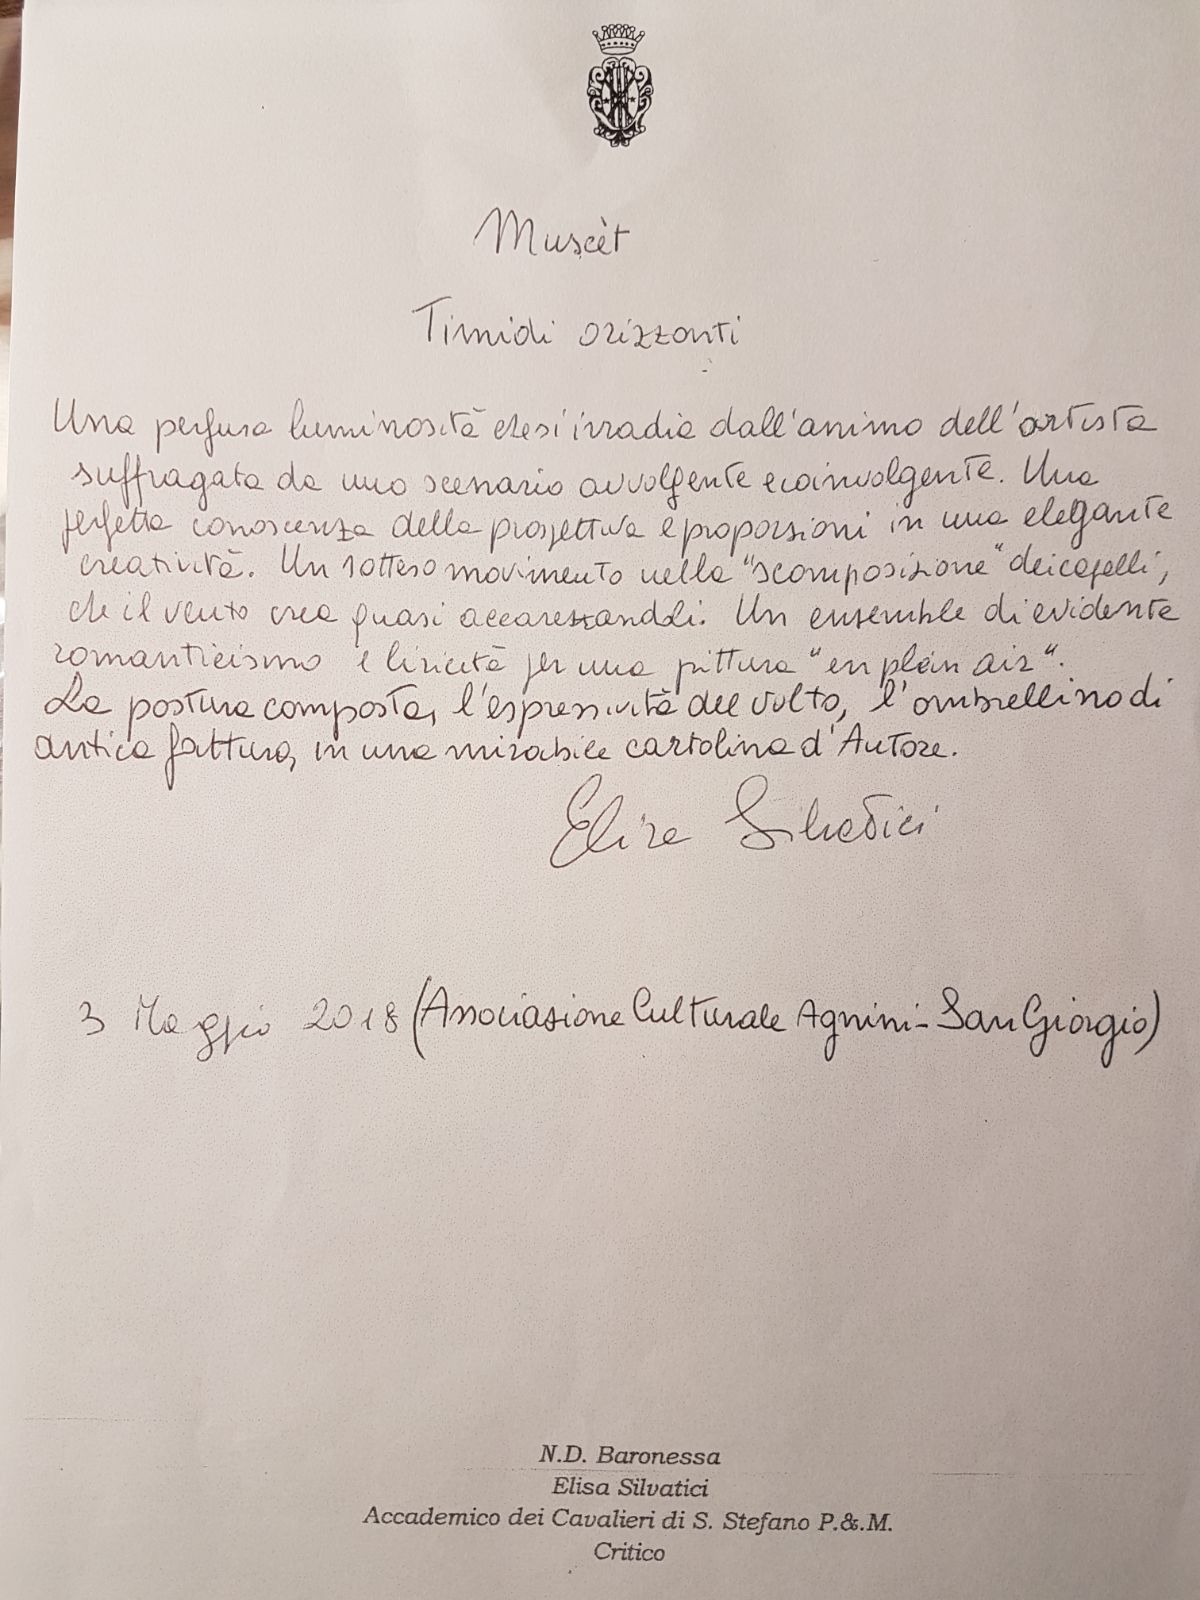 Muscèt
Timidi orizzonti
Una perfusa luminosità che si irradia dall'animo dell'artista
suffragata da uno scenario avvolgente e coinvolgente. Una
perfetta conoscenza della prospettiva e proporzioni in una elegante
creatività. Un sotteso movimento nella "scomposizione" dei capelli,
che il vento crea quasi accarezzandoli. Un ensemble di evidente
romanticismo e liricità per una pittura "en plein air".
La postura composta, l'espressività del volto, l'ombrellino di
antica fattura, in una mirabile cartolina d'Autore.
Elisa Silvatici
3 Maggio 2018 (Associazione Culturale Agnini-San Giorgio)
N.D. Baronessa
Elisa Silvatici
Accademico dei Cavalieri di S. Stefano P.&.M.
Critico